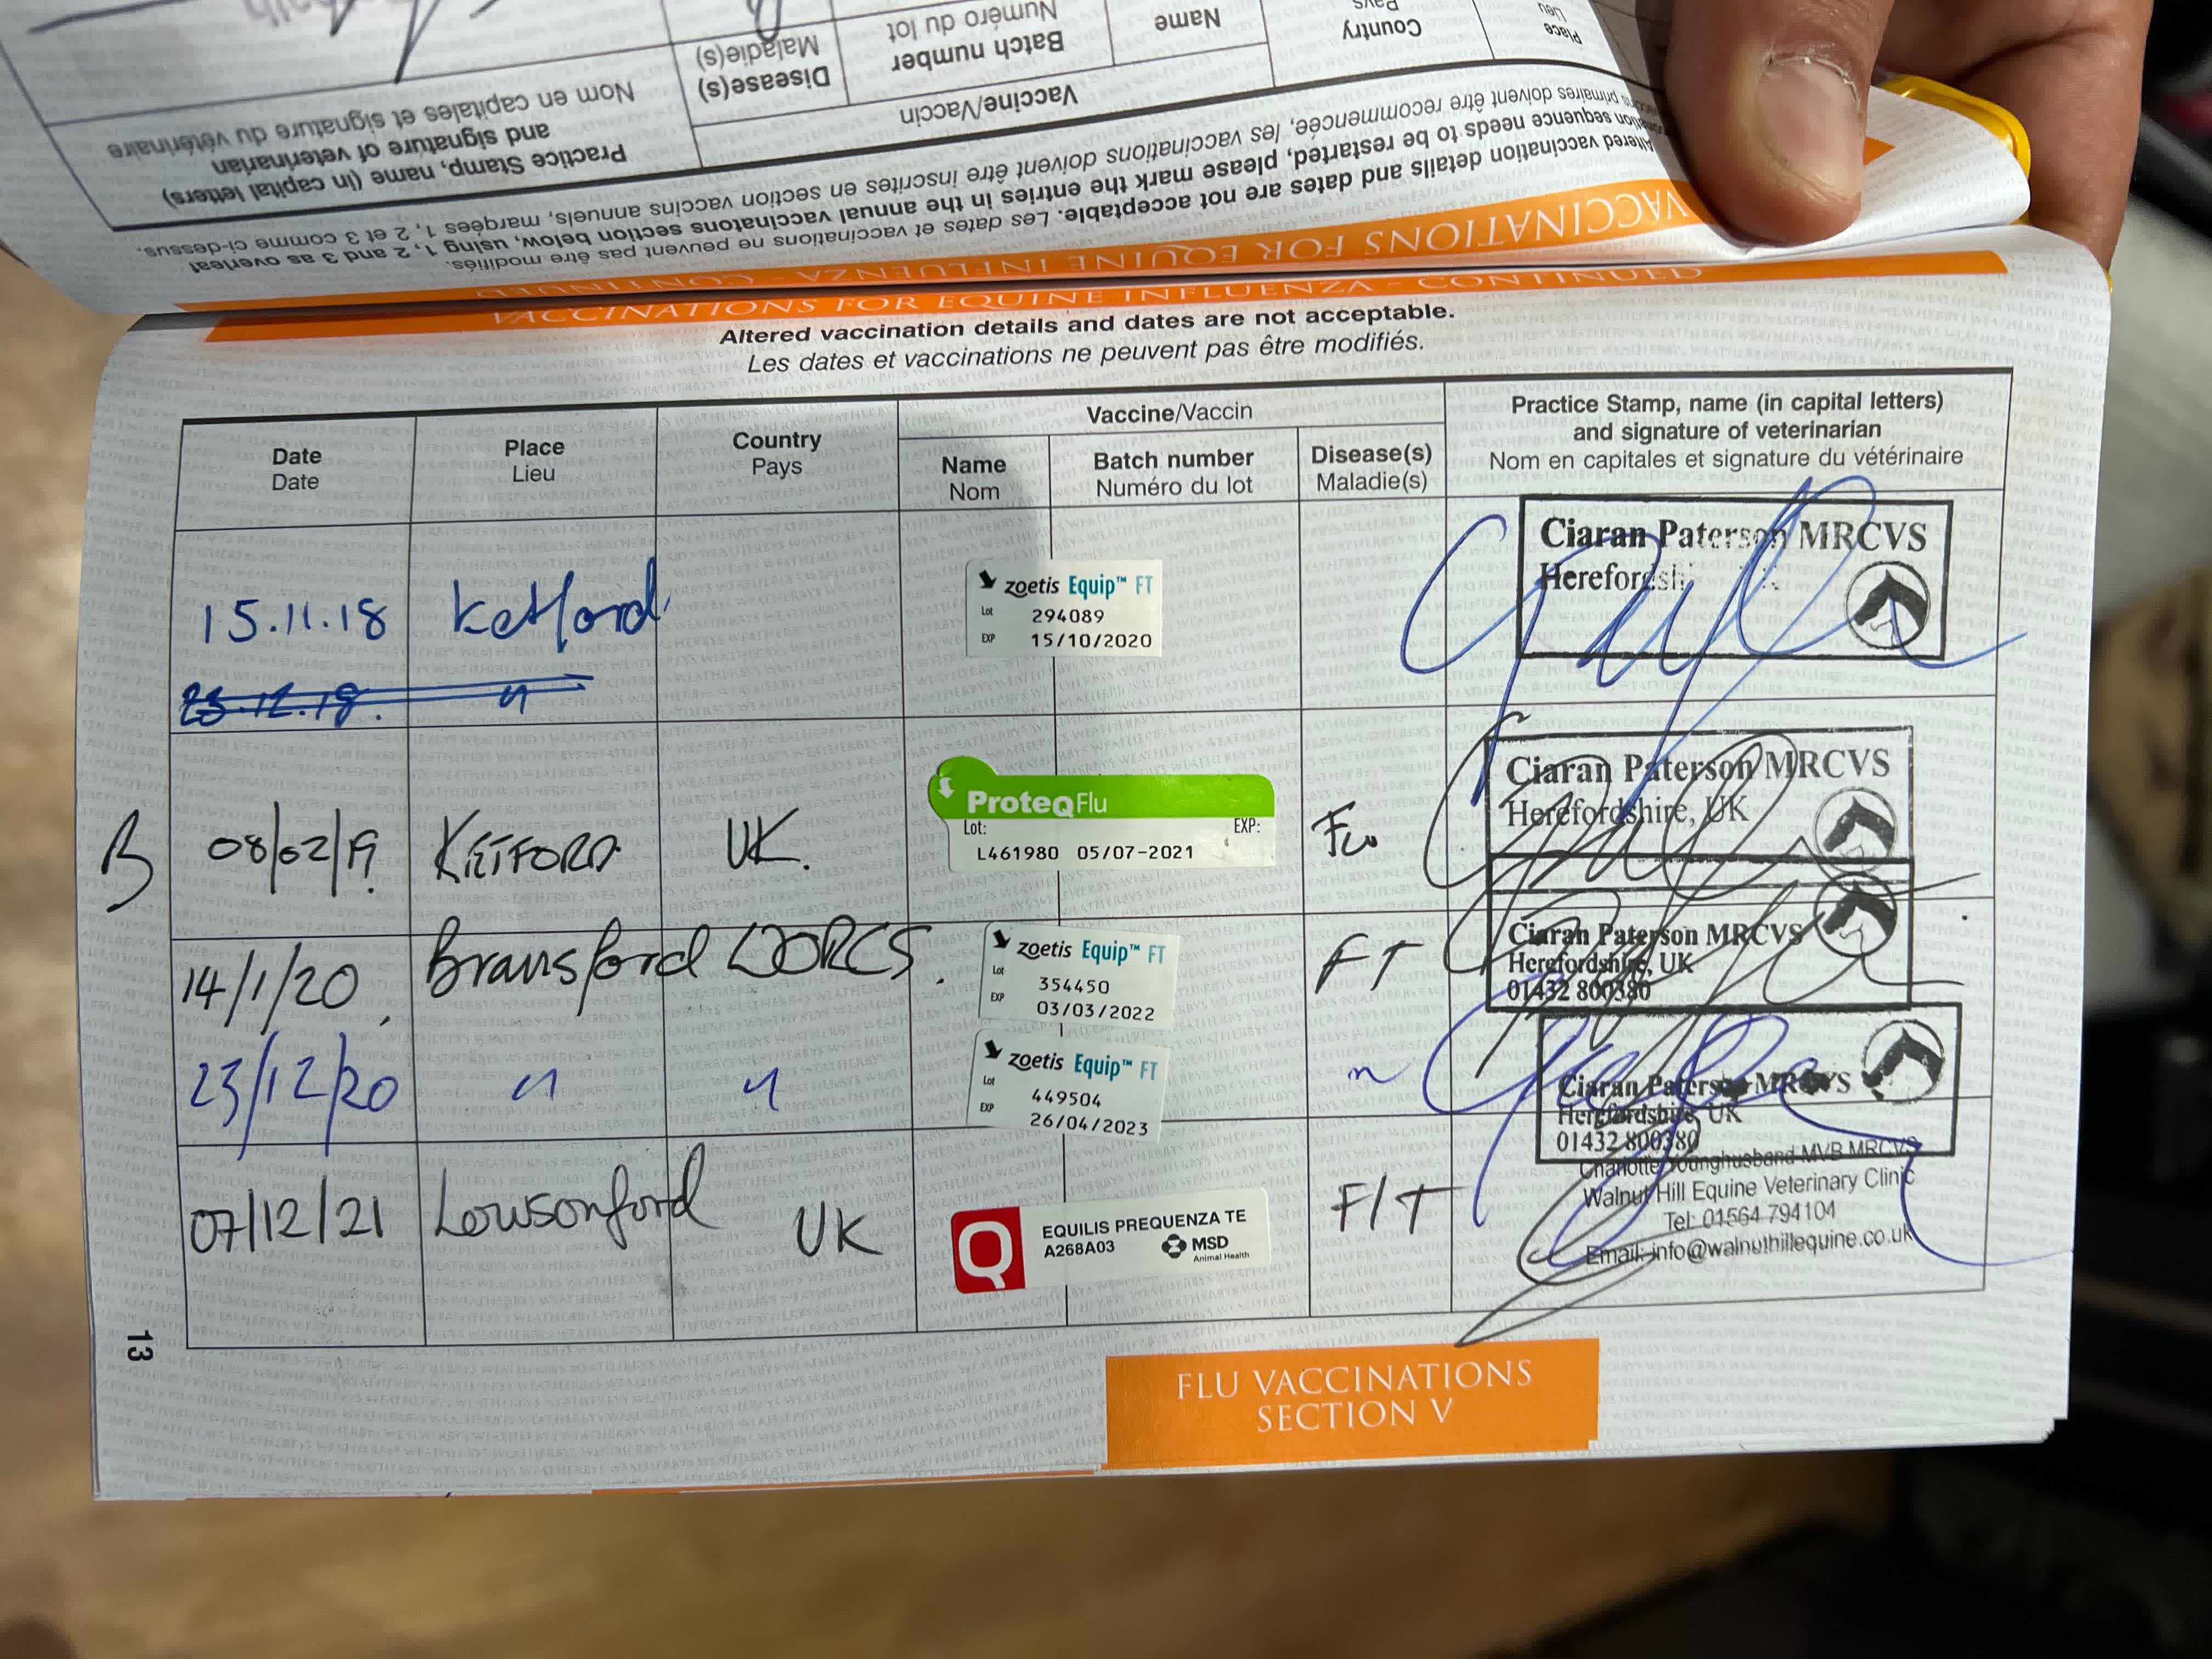 Place
Lieu
Country
Pays
Name
Batch number
Numéro du lot
Disease(s)
Maladie(s)
Vaccine/Vaccin
Practice Stamp, name (in capital letters)
and signature of veterinarian
Nom en capitales et signature du vétérinaire
primaires doivent être recommencée, les vaccinations doivent être inscrites en section vaccins annuels, marquées 1, 2 et 3 comme ci-dessus.
sequence needs to be restarted, please mark the entries in the annual vaccinatons section below, using 1, 2 and 3 as overleaf
Altered vaccination details and dates are not acceptable. Les dates et vaccinations ne peuvent pas être modifiés.
VACCINATIONS FOR EQUINE INFLUENZA - CONTINUED
VACCINATIONS FOR EQUINE INFLUENZA - CONTINUED
Altered vaccination details and dates are not acceptable.
Les dates et vaccinations ne peuvent pas être modifiés.
Date
Date
Place
Lieu
Country
Pays
Vaccine/Vaccin
Name
Nom
Batch number
Numéro du lot
Disease(s)
Maladie(s)
Practice Stamp, name (in capital letters)
and signature of veterinarian
Nom en capitales et signature du vétérinaire
15.11.18 Ketford
zoetis Equip™ FT
Lot 294089
EXP 15/10/2020
Ciaran Paterson MRCVS
B 08/02/19 KETFORD UK.
ProteqFlu
Lot: EXP:
L461980 05/07-2021
Flu
Ciaran Paterson MRCVS
Herefordshire, UK
14/1/20 Bransford WORCS.
zoetis Equip™ FT
Lot 354450
EXP 03/03/2022
FT
Ciaran Paterson MRCVS
Herefordshire, UK
01432 800380
23/12/20 " "
zoetis Equip™ FT
Lot 449504
EXP 26/04/2023
"
Ciaran Paterson MRCVS
Herefordshire, UK
01432 800380
07/12/21 Lowsonford UK
Q
EQUILIS PREQUENZA TE
A268A03 MSD
Animal Health
F/T
Charlotte Younghusband MVB MRCVS
Walnut Hill Equine Veterinary Clinic
Tel: 01564 794104
Email: info@walnuthillequine.co.uk
13
FLU VACCINATIONS
SECTION V